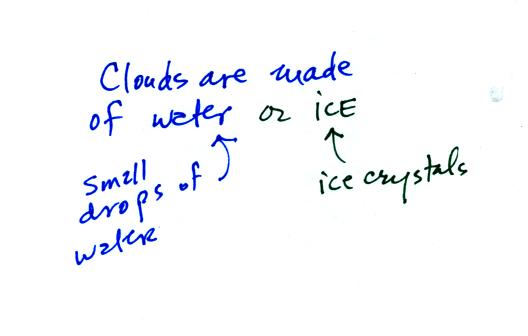 Clouds are made
of water or iCE
small
drops of
water
ice crystals